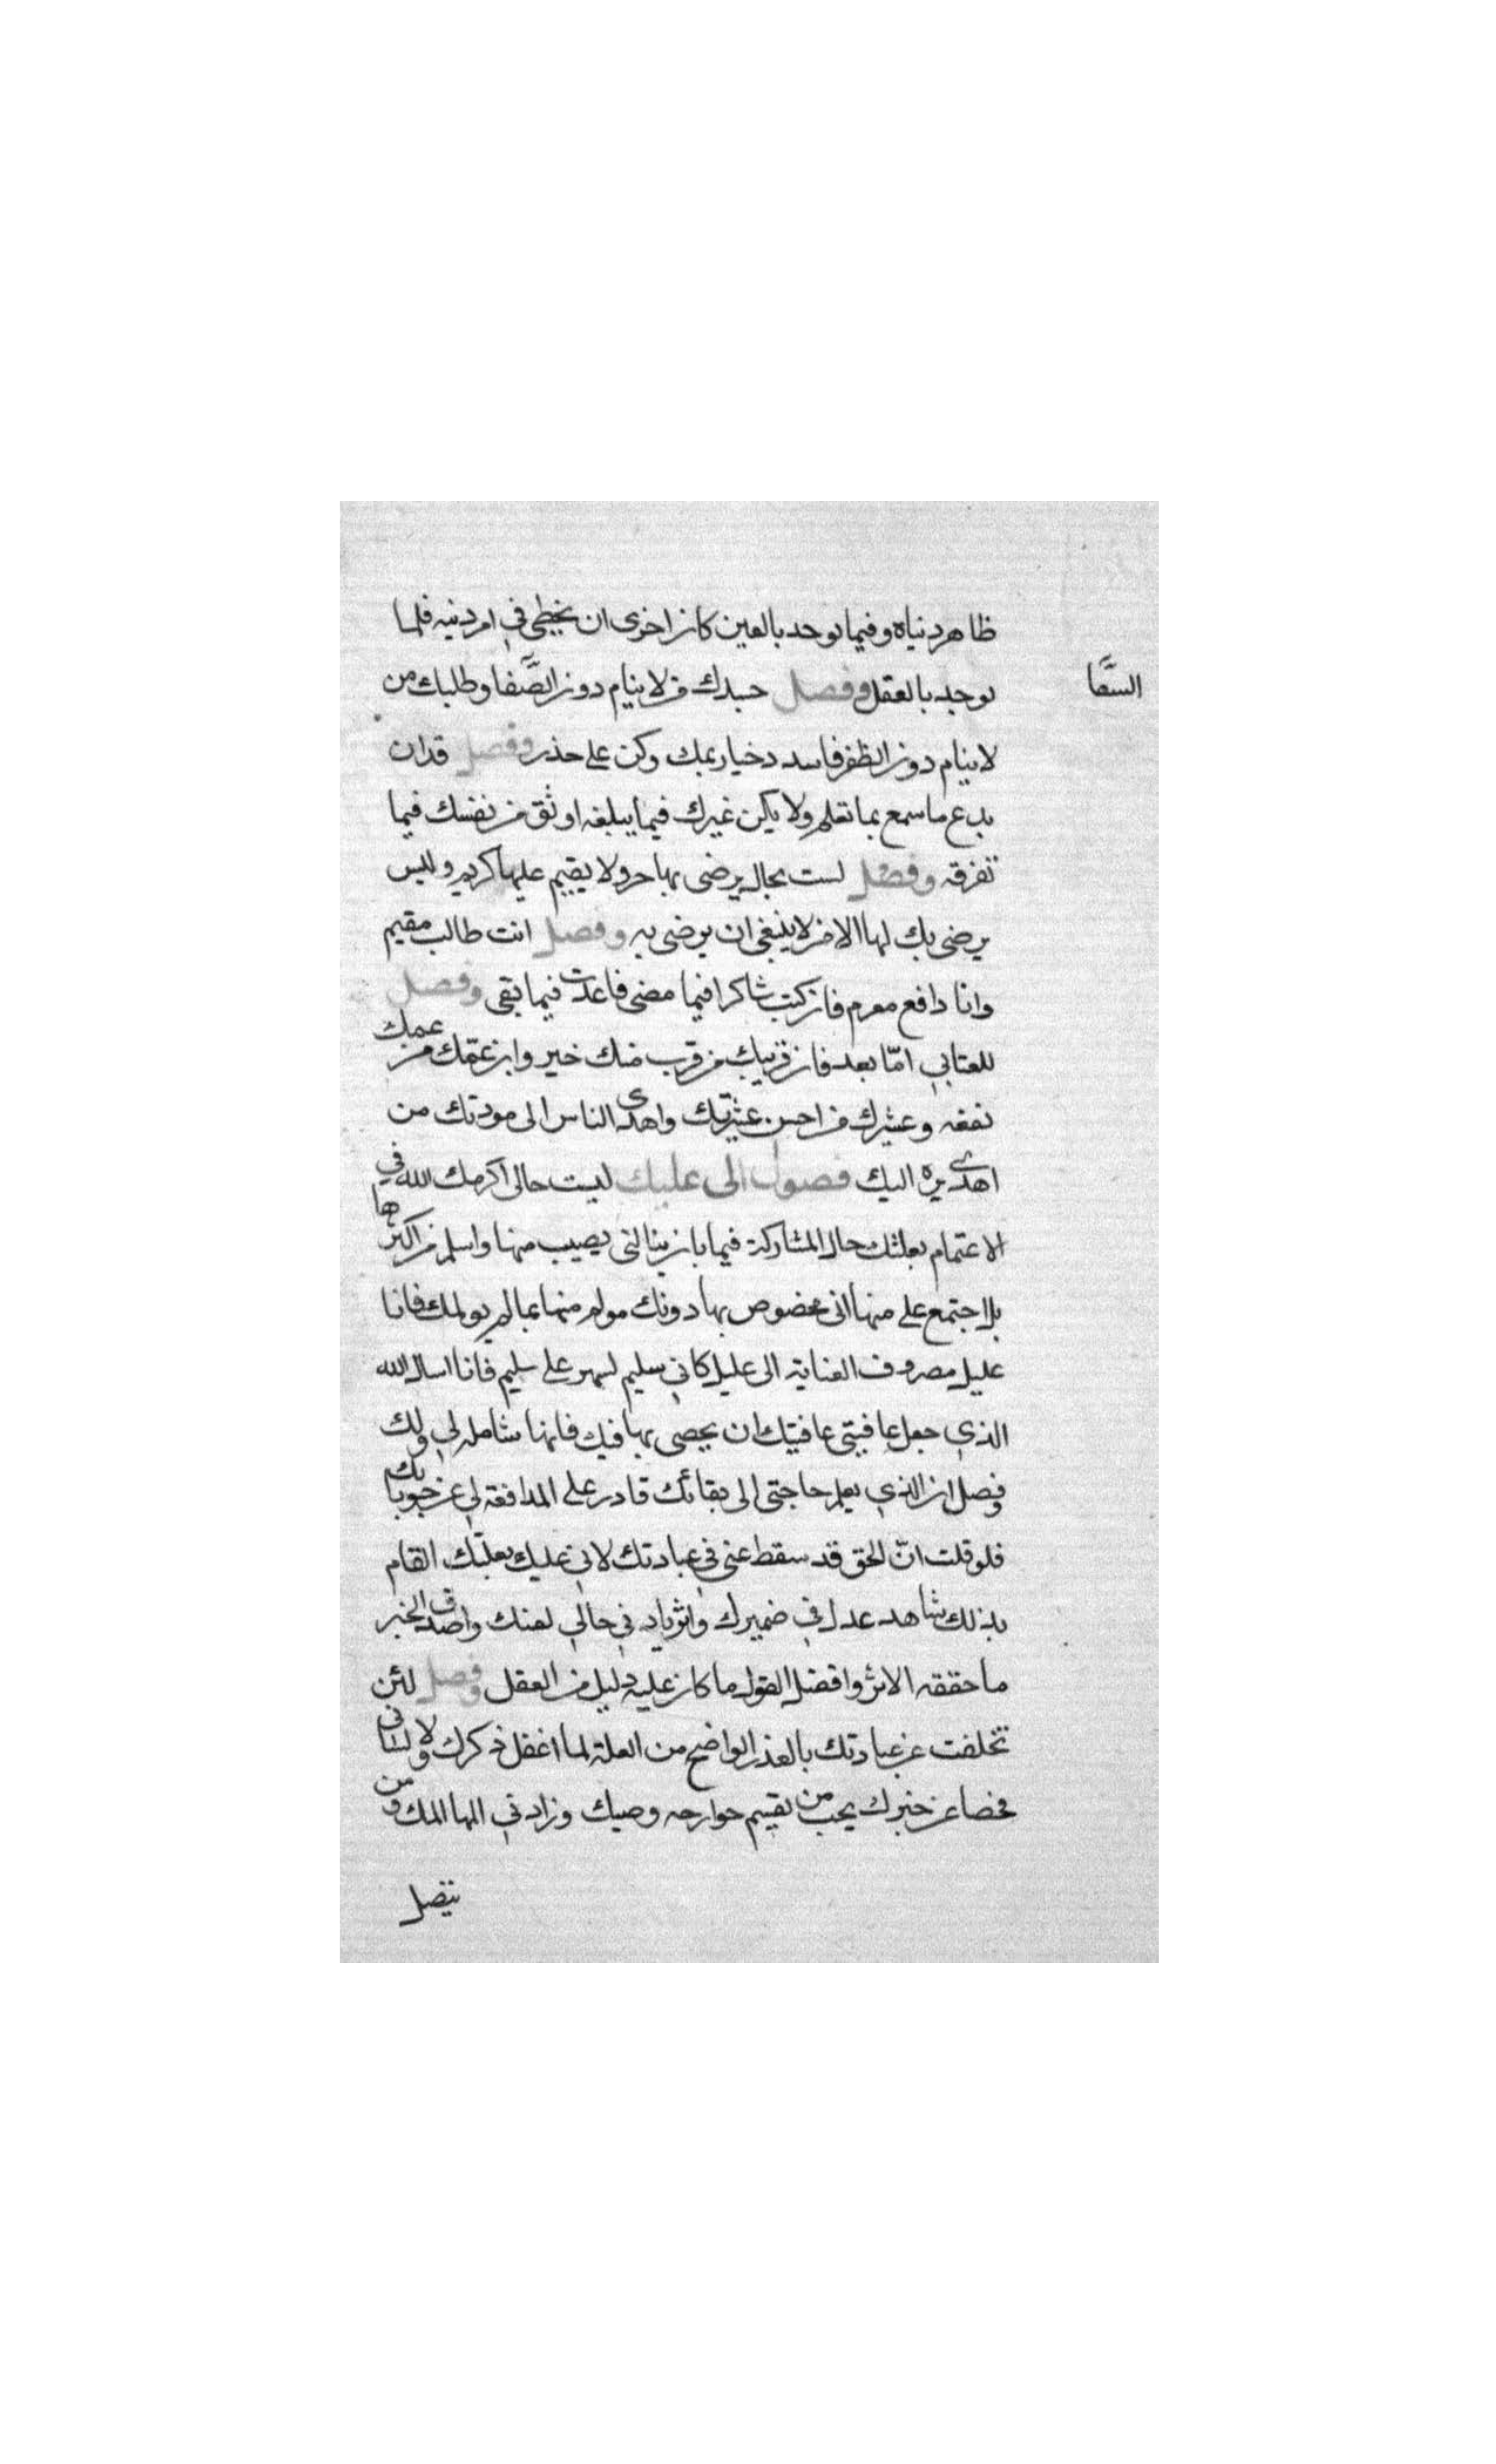 ظاهر دنياه وفيما يوجد بالعين كان اخرى ان يخطى في امر دينه فلما
يوجد بالعقل وفصل حسدك من لا ينام دون الصَّنفا وطلبك من
السقَّا
لا ينام دون الظفر فاسدد خيار يمك وكن على حذر وفصل قدان
يدع ما سمع بما تعلم ولا يكن غيرك فيما يبلغه اوثق من نفسك فيما
تفرقه وفصل لست بحال يرضى بها حر ولا يقيم عليها كريم وليس
يرضى بك لها الا من لا ينبغى ان يرضى به وفصل انت طالب مقيم
وانا دافع مغرم فان كنت شاكرا فيما مضى فاعدت فيما بقى وفصل
للعتابي امّا بعد فان قريبك من قرب منك خير وابن عمّك من عمك
نفعه وعشرك من احسن عشرتك واهدى الناس الى مودتك من
اهدى بره اليك فصول الى عليك ليست حالى اكرمك الله في
الاعتمام بعلتك حال المشاركة فيما بان ينالنى يصيب منها واسلم من اكثرها
بلا اجتمع على منها انى مخصوص بها دونك مولم منها بما لم يولمك فانا
عليل مصروف العناية الى عليل كاني سليم لسهر على سليم فانا اسال الله
الذي جعل عافيتى عافيتك ان يحصى بها فيك فانها شامله لي ولك
وفصل ان الذي يعلم حاجتى الى بقائك قادر على المدافعة لي عن حوبائك
فلو قلت انّ الحق قد سقط عنى في عيادتك لاني عليك بعلتك القام
بذلك شاهد عدل في ضميرك واثر باد في حالي لعنك واصدق الخبر
ما حققه الاثر وافضل القول ما كان عليه دليل من العقل وفصل لئن
تخلفت عن عيادتك بالعذر الواضح من العلة لما اغفل ذكرك ولا لسانى
فحصا عن خبرك يحب من تقيم جوارحه وصبك وزاد في المها المك ومن
يتصل